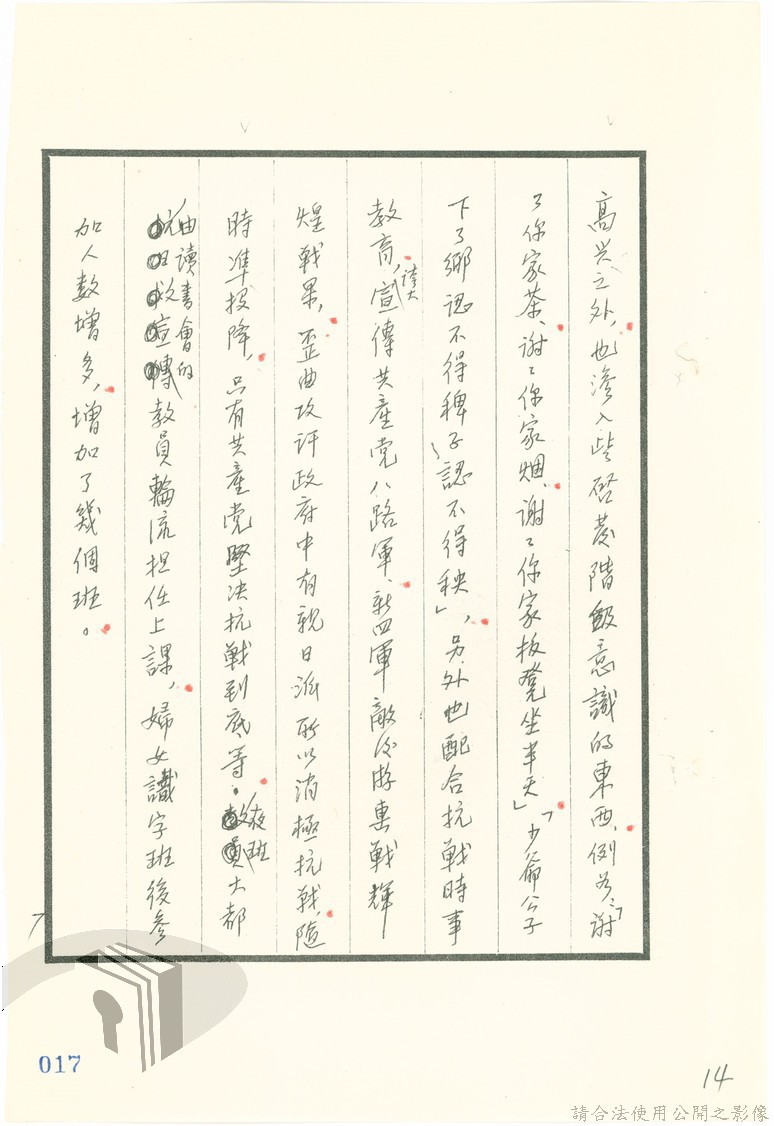 高兴之外,也滲入些啓蒙階級意識的東西,例如:「謝
了你家茶、謝々你家烟、謝々你家板凳坐半天」「少爺公子
下了鄉認不得稗子、認不得秧」,另外也配合抗戰時事
教育,誇大宣傳共產党八路軍、新四軍敵後游擊戰輝
煌戰果,歪曲攻訐政府中有親日派所以消極抗戰,隨
時準投降,只有共產党堅决抗戰到底等。夜班大都
由讀書會的教員輪流担任上課,婦女識字班後參
加人数增多,增加了幾個班。
017
14
請合法使用公開之影像